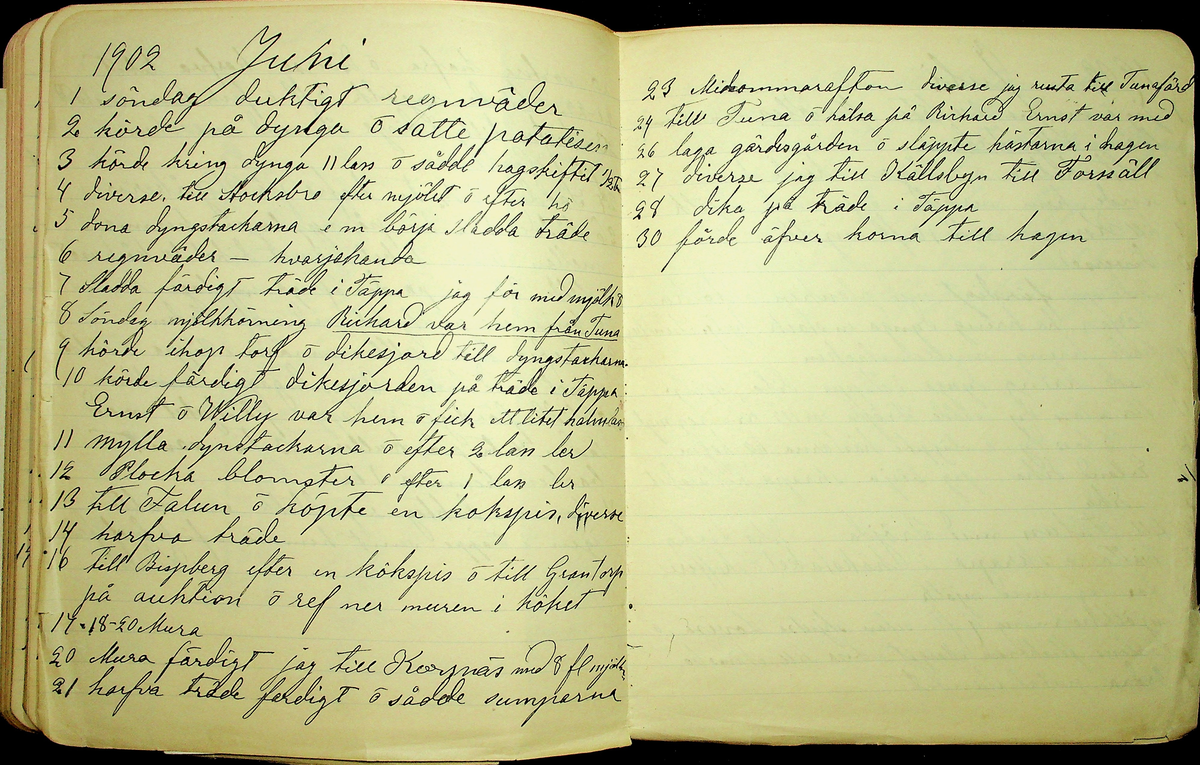 1902 Juni
1 söndag duktigt regnväder
2 körde på dynga ō satte potatisen
3 körde kring dynga 11 lass ō sådde hagskiftet
4 diverse, till Stocksbro efter mjölet ō efter hö
5 dona dyngstackarna e m börja sladda träde
6 regnväder — hvarjehanda
7 sladda färdigt träde i Täppa jag för med mjölk 8
8 Söndag mjölkkörning Rickard var hem från Tuna
9 körde ihop torf ō dikesjord till dyngstackarna
10 körde färdigt dikesjorden på träde i Täppa
Ernst ō Willy var hem ō fick ett litet halmlass
11 mylla dyngstackarna ō efter 2 lass ler
12 Plocka blomster ō efter 1 lass ler
13 till Falun ō köpte en kokspis, diverse
14 harfva träde
16 till Bispberg efter en kökspis ō till Grantorp
på auktion ō ref ner muren i köket
17-18-20 Mura
20 Mura färdigt jag till Korsnäs med 8 fl mjölk
21 harfva träde färdigt ō sådde sumparna
23 Midsommarafton diverse jag rusta till Tunafärd
24 till Tuna ō hälsa på Rickard Ernst var med
26 laga gärdesgården ō släppte hästarna i hagen
27 diverse jag till Källsbyn till Forssäll
28 dika på träde i Täppa
30 förde äfver korna till hagen